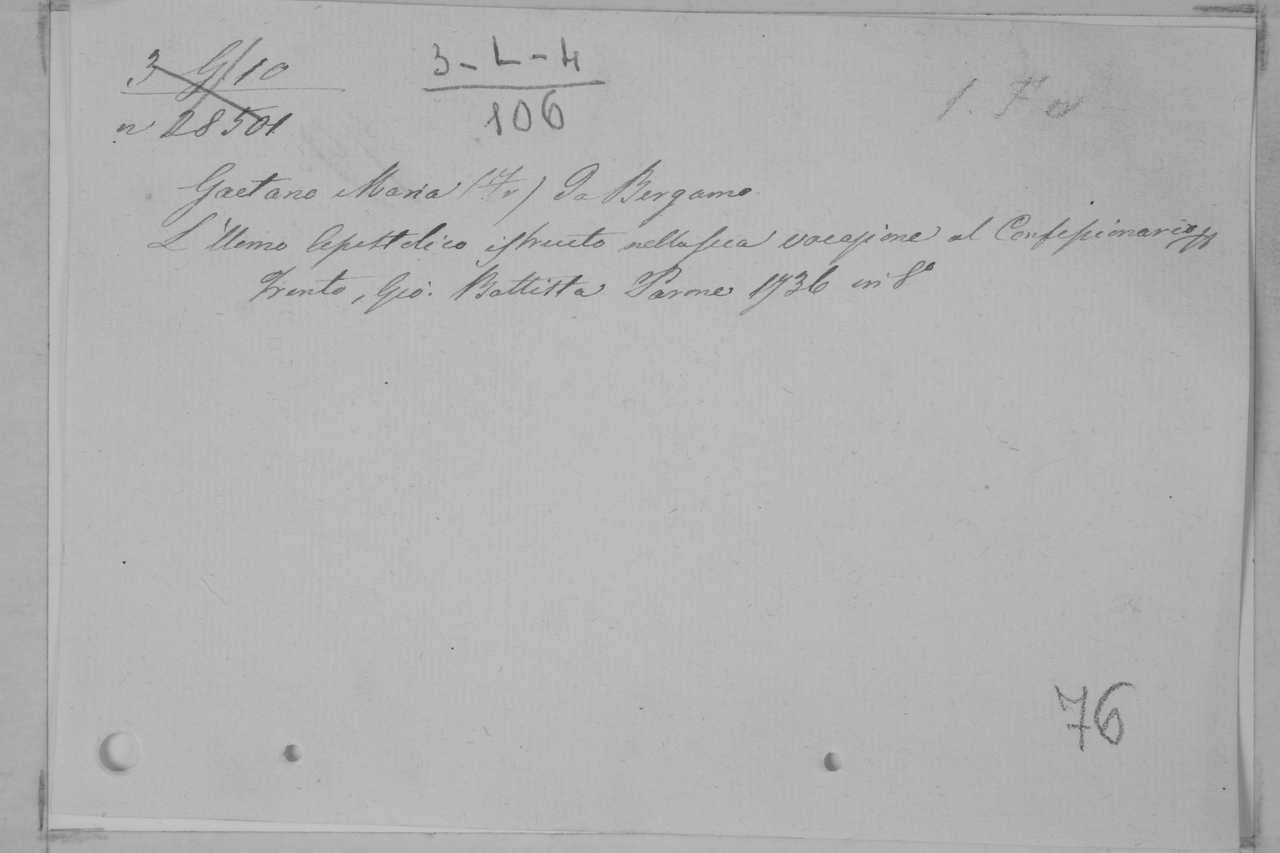 3 G/10
n 28501
3-L-4
106
1. F
Gaetano Maria (Fr) Da Bergamo
L'Uomo Apostolico istruito nella sua vocazione al Confessionario
Trento, Gio. Battista Parone 1736 in 8°
76